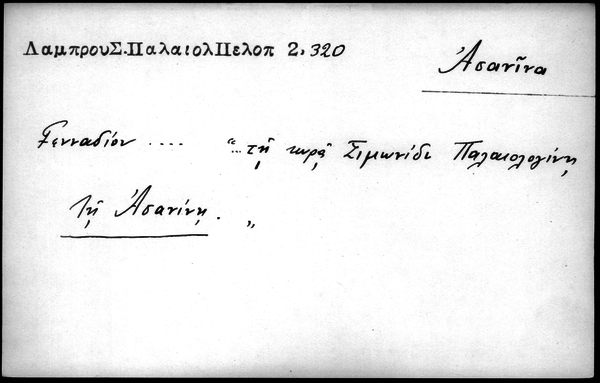 ΛαμπρουΣ.ΠαλαιολΠελοπ 2.320
Ἀσανῖνα
Γενναδίου .... "...τῇ κυρᾷ Σιμωνίδι Παλαιολογίνῃ
τῇ Ἀσανίνῃ. "